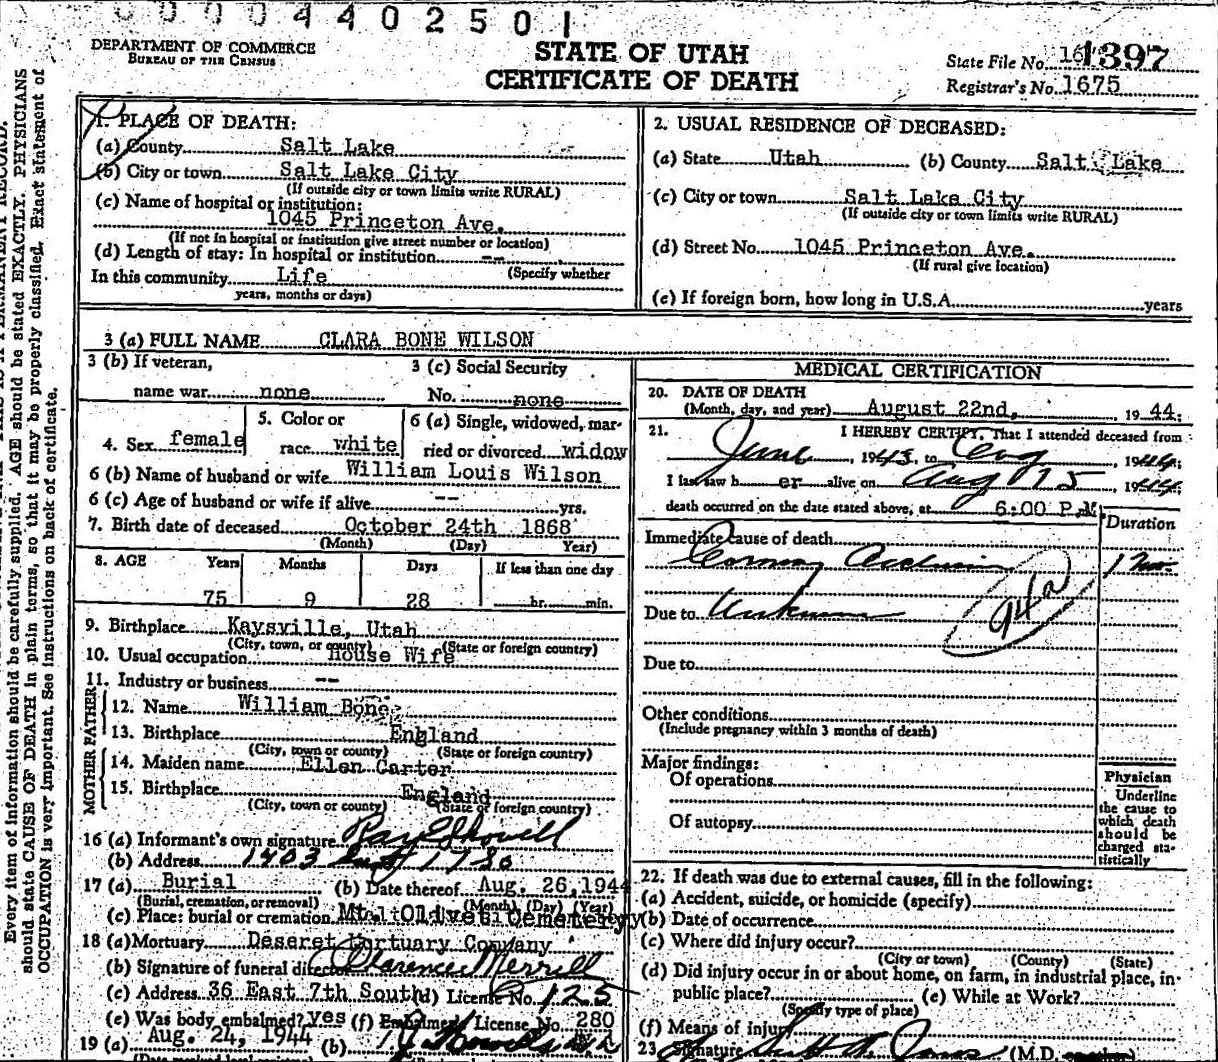 0004402501
DEPARTMENT OF COMMERCE
BUREAU OF THE CENSUS
STATE OF UTAH
CERTIFICATE OF DEATH
State File No. 16 1397
Registrar's No. 1675
Every item of information should be carefully supplied. AGE should be stated EXACTLY. PHYSICIANS
should state CAUSE OF DEATH in plain terms, so that it may be properly classified. Exact statement of
OCCUPATION is very important. See instructions on back of certificate.
1. PLACE OF DEATH:
(a) County Salt Lake
(b) City or town Salt Lake City
(If outside city or town limits write RURAL)
(c) Name of hospital or institution:
1045 Princeton Ave.
(If not in hospital or institution give street number or location)
(d) Length of stay: In hospital or institution --
(Specify whether
In this community Life
years, months or days)
2. USUAL RESIDENCE OF DECEASED:
(a) State Utah (b) County Salt Lake
(c) City or town Salt Lake City
(If outside city or town limits write RURAL)
(d) Street No. 1045 Princeton Ave.
(If rural give location)
(e) If foreign born, how long in U.S.A. years
3 (a) FULL NAME CLARA BONE WILSON
3 (b) If veteran,
name war none
3 (c) Social Security
No. none
4. Sex female
5. Color or
race white
6 (a) Single, widowed, mar-
ried or divorced widow
6 (b) Name of husband or wife William Louis Wilson
6 (c) Age of husband or wife if alive -- yrs.
7. Birth date of deceased October 24th 1868
(Month) (Day) Year)
8. AGE Years Months Days If less than one day
75 9 28 hr. min.
9. Birthplace Kaysville, Utah
(City, town, or county) (State or foreign country)
10. Usual occupation House Wife
11. Industry or business --
FATHER
12. Name William Bone
13. Birthplace England
(City, town or county) (State or foreign country)
MOTHER
14. Maiden name Ellen Carter
15. Birthplace England
(City, town or county) (State or foreign country)
16 (a) Informant's own signature Ray E Showell
(b) Address 1403 East 17 So
17 (a) Burial (b) Date thereof Aug. 26, 1944
(Burial, cremation, or removal) (Month) (Day) (Year)
(c) Place: burial or cremation Mt. Olivet Cemetery
18 (a) Mortuary Deseret Mortuary Company
(b) Signature of funeral director Clarence Merrill
(c) Address 36 East 7th South (d) License No. 125
(e) Was body embalmed? yes (f) Embalmer's License No. 280
19 (a) Aug. 24, 1944 (b)
MEDICAL CERTIFICATION
20. DATE OF DEATH
(Month, day, and year) August 22nd, 1944
21. I HEREBY CERTIFY, That I attended deceased from
June, 1943, to Aug 1944;
I last saw h er alive on Aug 15 1944;
death occurred on the date stated above, at 6:00 P.M.
Duration
Immediate cause of death
Coronary Occlusion
Due to Unknown
94a
Due to
Other conditions
(Include pregnancy within 3 months of death)
Major findings:
Of operations
Of autopsy
Physician
Underline
the cause to
which death
should be
charged sta-
tistically
22. If death was due to external causes, fill in the following:
(a) Accident, suicide, or homicide (specify)
(b) Date of occurrence
(c) Where did injury occur?
(City or town) (County) (State)
(d) Did injury occur in or about home, on farm, in industrial place, in-
public place? (e) While at Work?
(Specify type of place)
(f) Means of injury
23. Signature (M.D.